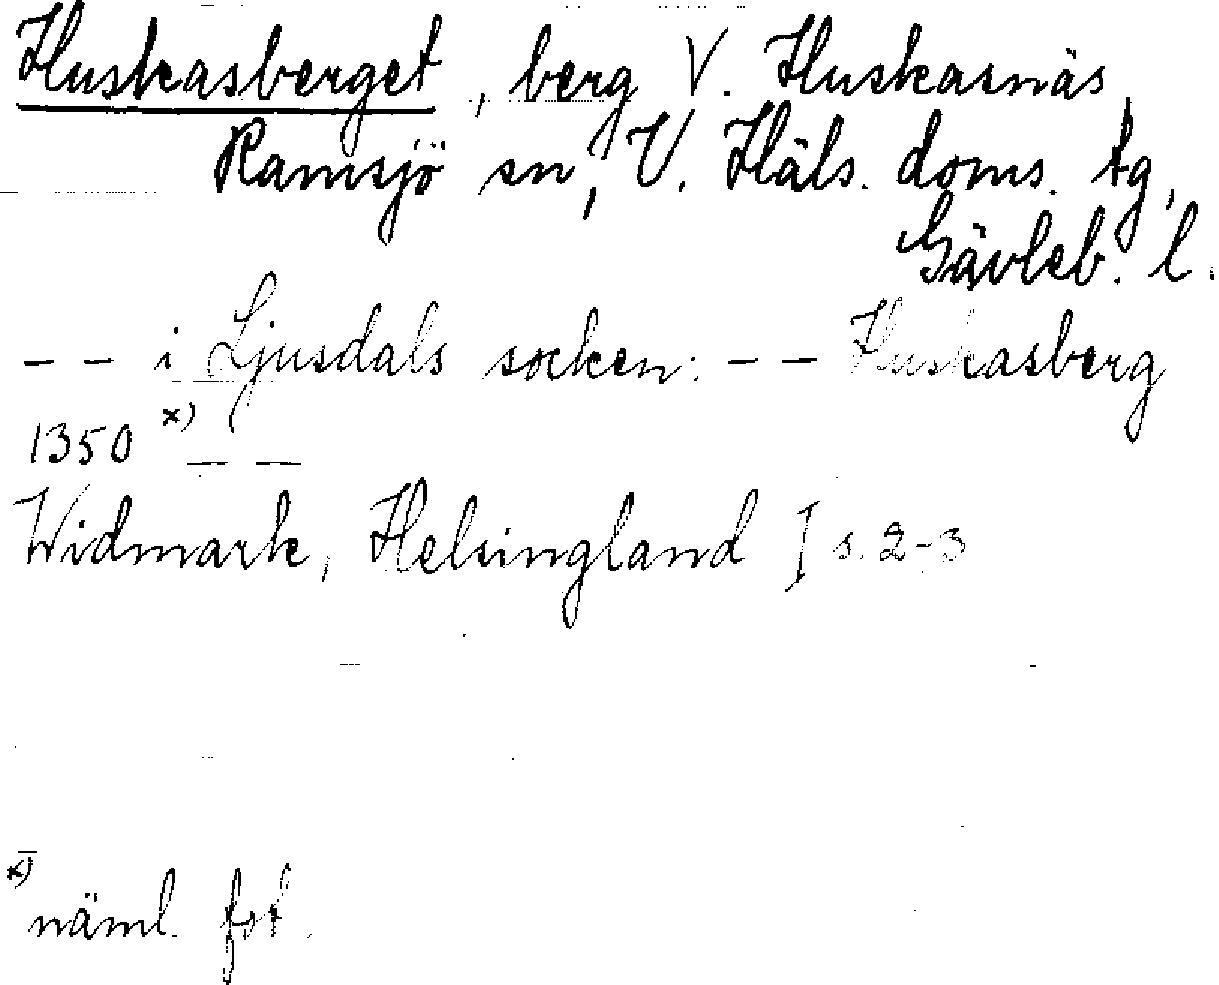 Huskasberget, berg V. Huskasnäs,
Ramsjö sn, V. Häls. doms. tg,
Gävleb. l.
– – i Ljusdals socken: – – Huskasberg
1350 x) – –
Widmark, Helsingland I s. 2-3
x) näml. fot.